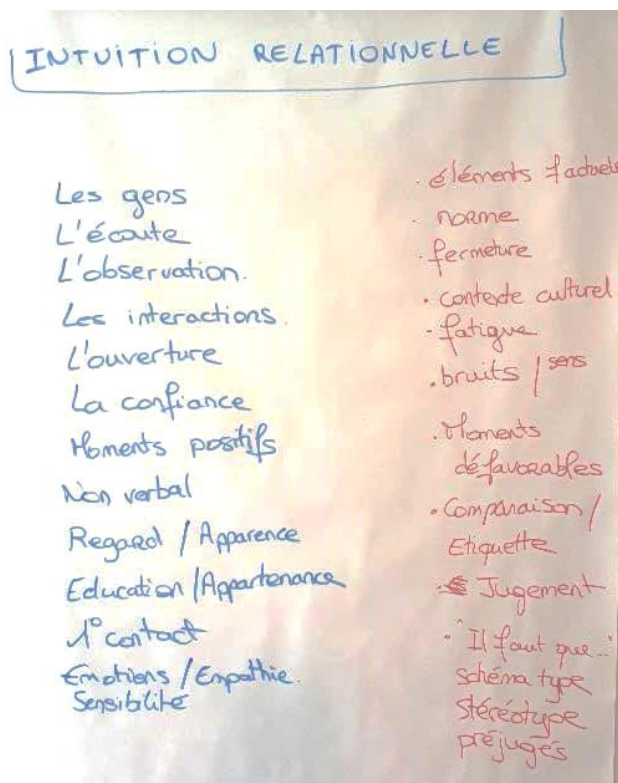 INTUITION RELATIONNELLE
Les gens
L'écoute
L'observation.
Les interactions.
L'ouverture
La confiance
Moments positifs
Non verbal
Regard / Apparence
Education / Appartenance
1° contact
Emotions / Empathie.
Sensibilité
. éléments factuels
. norme
. fermeture
. contexte culturel
. fatigue
. bruits / sens
. Moments
défavorables
. Comparaison /
Etiquette
. Jugement
. "Il faut que..."
schéma type
stéréotype
préjugés